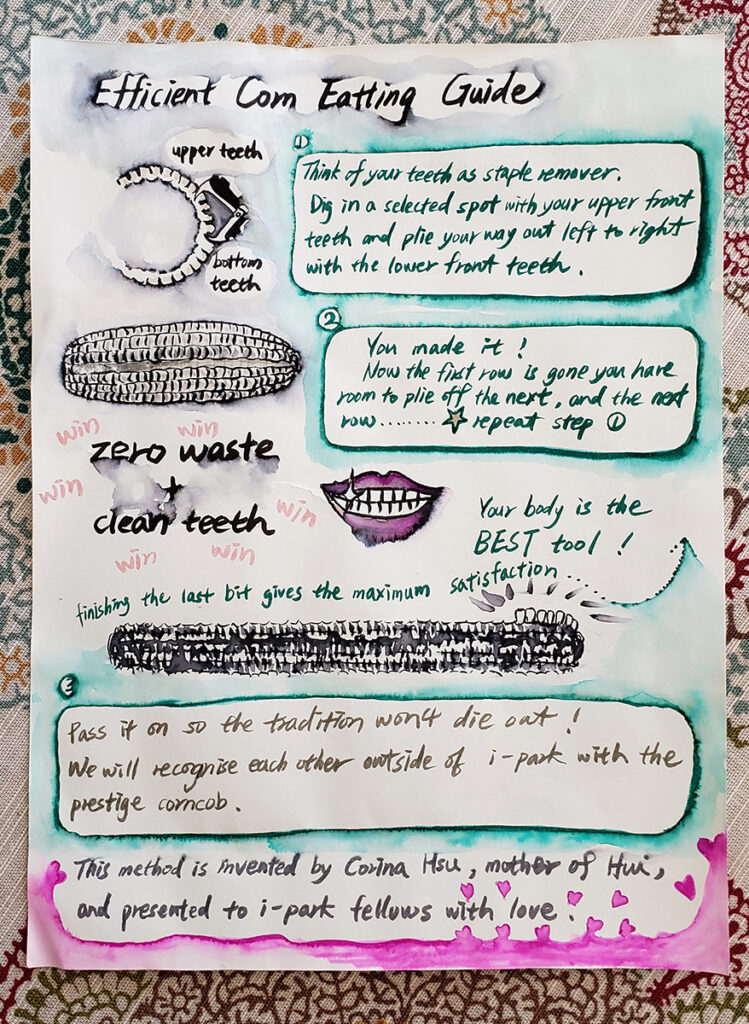 Efficient Corn Eatting Guide
upper teeth
bottom
teeth
1
Think of your teeth as staple remover.
Dig in a selected spot with your upper front
teeth and plie your way out left to right
with the lower front teeth.
2
You made it!
Now the first row is gone you have
room to plie off the next, and the next
row........ ☆ repeat step ①
win
win
zero waste
win
+
clean teeth
win
win
win
Your body is the
BEST tool!
finishing the last bit gives the maximum satisfaction
Pass it on so the tradition won't die out!
We will recognise each other outside of i-park with the
prestige corncob.
This method is invented by Corina Hsu, mother of Hui,
and presented to i-park fellows with love.